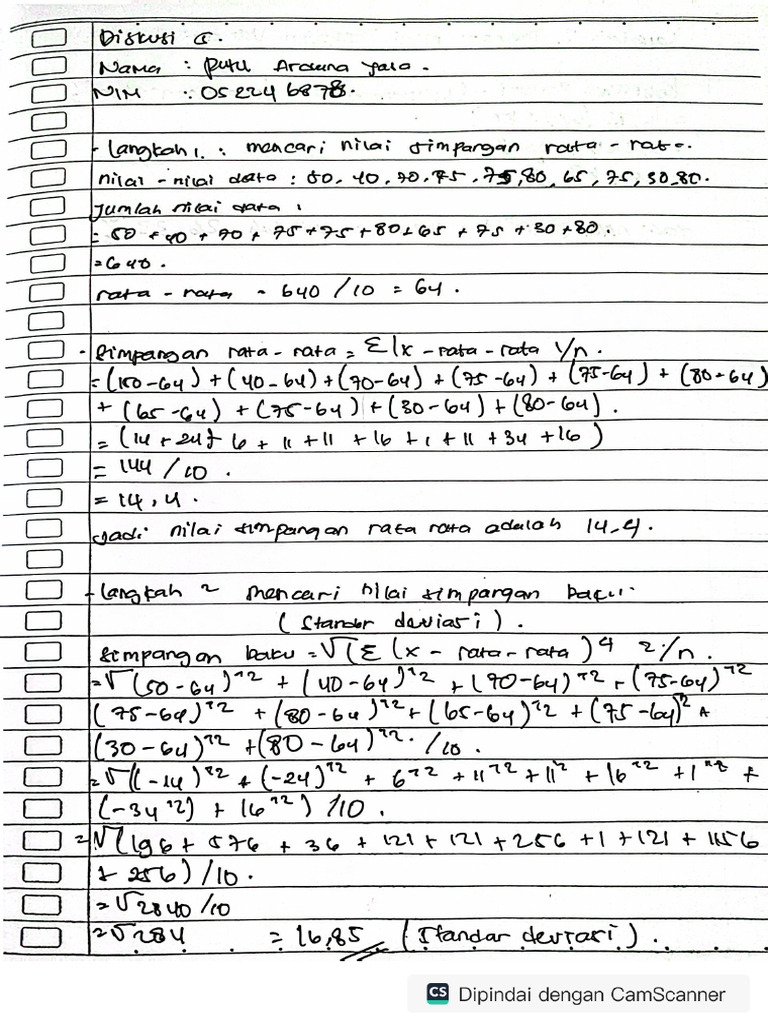 Diskusi 5.
Nama : Putu Arduna Yala.
NIM : 052246878.
- Langkah 1. : mencari nilai simpangan rata-rata.
nilai-nilai data : 50, 40, 70, 75, 75, 80, 65, 75, 30, 80.
Jumlah nilai data :
= 50 + 40 + 70 + 75 + 75 + 80 + 65 + 75 + 30 + 80.
= 640.
rata-rata = 640 / 10 = 64.
- Simpangan rata-rata = Σ|x - rata-rata 1/n.
= (150-64) + (40-64) + (70-64) + (75-64) + (75-64) + (80-64)
+ (65-64) + (75-64) + (30-64) + (80-64).
= (14 + 24 + 6 + 11 + 11 + 16 + 1 + 11 + 34 + 16)
= 144 / 10.
= 14,4.
Jadi nilai simpangan rata rata adalah 14,4.
- Langkah 2 mencari nilai simpangan baku.
(Standar deviasi).
Simpangan baku = √(Σ(x - rata-rata)^ 2/n.
= √(50-64)^2 + (40-64)^2 + (70-64)^2 + (75-64)^2
(75-64)^2 + (80-64)^2 + (65-64)^2 + (75-64)^2 +
(30-64)^2 + (80-64)^2. /10.
= √((-14)^2 + (-24)^2 + 6^2 + 11^2 + 11^2 + 16^2 + 1^2 +
(-34^2) + 16^2) /10.
= √(196 + 576 + 36 + 121 + 121 + 256 + 1 + 121 + 1156
+ 256) /10.
= √2840/10
= √284 = 16,85 (Standar deviasi).
CS Dipindai dengan CamScanner